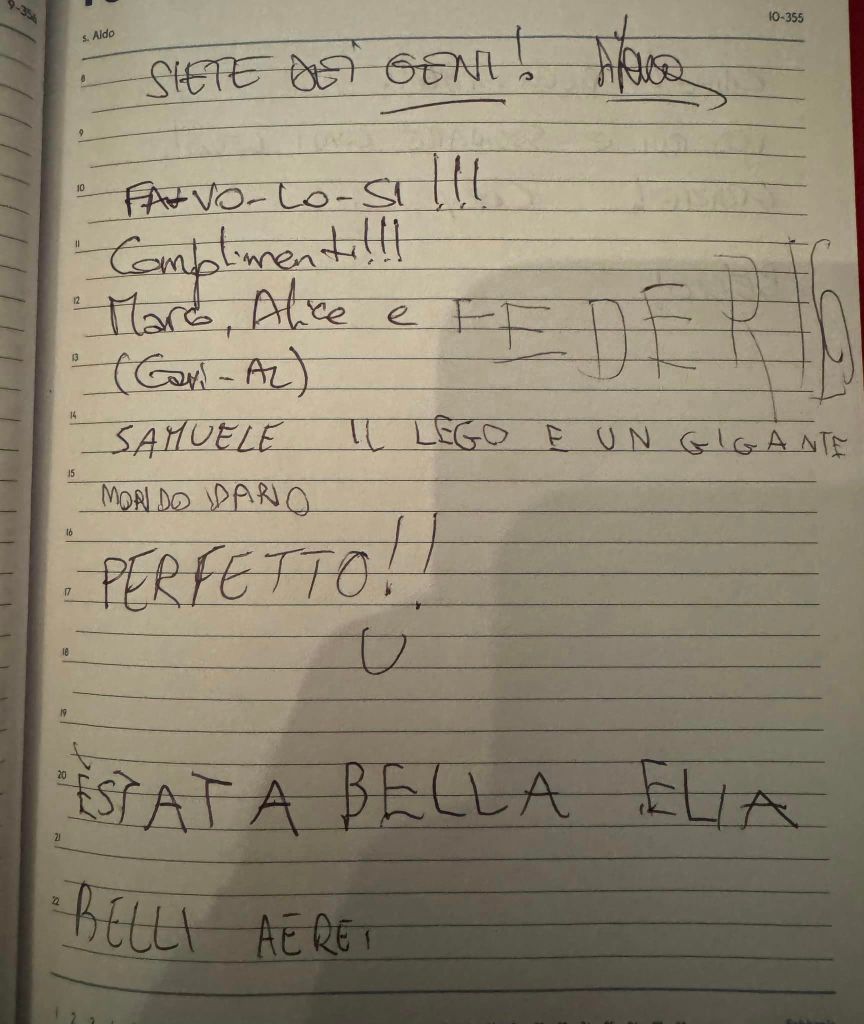 9-356
10-355
s. Aldo
8
SIETE DEI GENI!
9
10
FAVO-LO-SI!!!
11
Complimenti!!!
12
Marco, Alice e FEDERICO
13
(Gavi-AL)
14
SAMUELE IL LEGO E UN GIGANTE
15
MONDO DARIO
16
PERFETTO!!
17
U
18
19
20
È STATA BELLA ELIA
21
22
BELLI AEREI